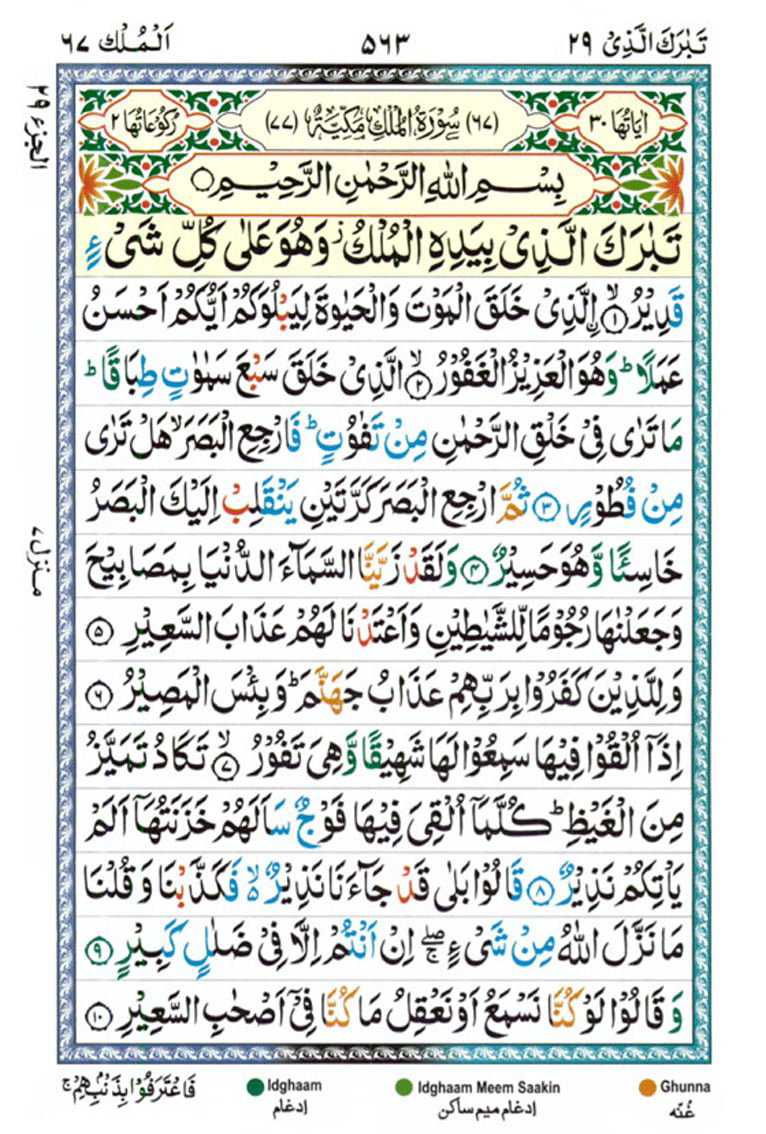 تَبٰرَكَ الَّذِىْ ٢٩
٥٦٣
اَلْمُلْك ٦٧
اٰيَاتُهَا ٣٠
(٦٧) سُوْرَةُ الْمُلْكِ مَكِّيَّةٌ (٧٧)
رُكُوْعَاتُهَا ٢
الجزء ٢٩
بِسْمِ اللّٰهِ الرَّحْمٰنِ الرَّحِيْمِ
تَبٰرَكَ الَّذِىْ بِيَدِهِ الْمُلْكُ ز وَهُوَ عَلٰى كُلِّ شَىْءٍ
قَدِيْرُ ۙ‏﴿١﴾ اۨلَّذِىْ خَلَقَ الْمَوْتَ وَالْحَيٰوةَ لِيَبْلُوَكُمْ اَيُّكُمْ اَحْسَنُ
عَمَلًا ؕ وَهُوَ الْعَزِيْزُ الْغَفُوْرُ ۙ‏﴿٢﴾ الَّذِىْ خَلَقَ سَبْعَ سَمٰوٰتٍ طِبَاقًا ؕ
مَا تَرٰى فِىْ خَلْقِ الرَّحْمٰنِ مِنْ تَفٰوُتٍ ؕ فَارْجِعِ الْبَصَرَ ۙ هَلْ تَرٰى
مِنْ فُطُوْرٍ ﴿٣﴾ ثُمَّ ارْجِعِ الْبَصَرَ كَرَّتَيْنِ يَنْقَلِبْ اِلَيْكَ الْبَصَرُ
خَاسِئًا وَّهُوَ حَسِيْرٌ ﴿٤﴾ وَلَقَدْ زَيَّنَّا السَّمَآءَ الدُّنْيَا بِمَصَابِيْحَ
وَجَعَلْنٰهَا رُجُوْمًا لِّلشَّيٰطِيْنِ وَاَعْتَدْنَا لَهُمْ عَذَابَ السَّعِيْرِ ﴿٥﴾
وَلِلَّذِيْنَ كَفَرُوْا بِرَبِّهِمْ عَذَابُ جَهَنَّمَ ؕ وَبِئْسَ الْمَصِيْرُ ﴿٦﴾
اِذَآ اُلْقُوْا فِيْهَا سَمِعُوْا لَهَا شَهِيْقًا وَّهِىَ تَفُوْرُ ۙ‏﴿٧﴾ تَكَادُ تَمَيَّزُ
مِنَ الْغَيْظِ ؕ كُلَّمَآ اُلْقِىَ فِيْهَا فَوْجٌ سَاَلَهُمْ خَزَنَتُهَآ اَلَمْ
يَاْتِكُمْ نَذِيْرٌ ﴿٨﴾ قَالُوْا بَلٰى قَدْ جَآءَنَا نَذِيْرٌ ۙ۬ فَكَذَّبْنَا وَقُلْنَا
مَا نَزَّلَ اللّٰهُ مِنْ شَىْءٍ ۖۚ اِنْ اَنْتُمْ اِلَّا فِىْ ضَلٰلٍ كَبِيْرٍ ﴿٩﴾
وَقَالُوْا لَوْ كُنَّا نَسْمَعُ اَوْ نَعْقِلُ مَا كُنَّا فِىْٓ اَصْحٰبِ السَّعِيْرِ ﴿١٠﴾
منزل ٧
فَاعْتَرَفُوْا بِذَنْۢبِهِمْ ۚ
Idghaam
ادغام
Idghaam Meem Saakin
ادغام میم ساکن
Ghunna
غُنّه